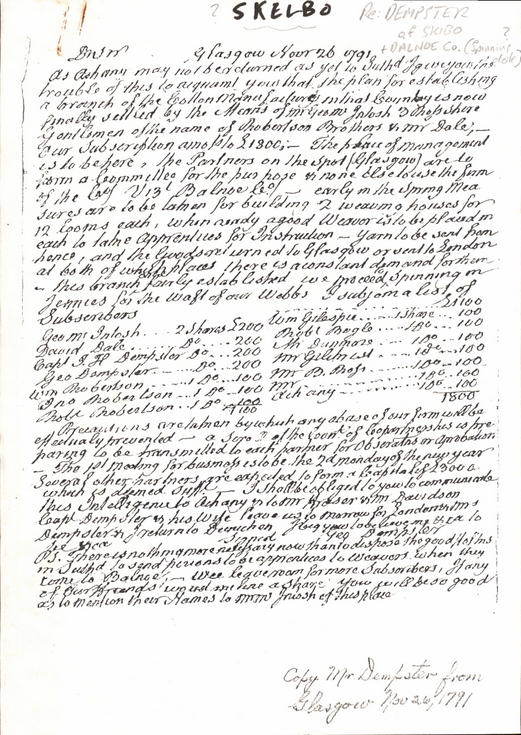 ? SKELBO
Re: DEMPSTER
of SKIBO
+ DALNOE Co. (Spinning ?
Dr Sir Glasgow Novr 26 1791
As Achany may not be returned as yet to Suthd I give you the
trouble of this to acquaint you that the plan for establishing
a branch of the Cotton Manufacture in that Country is now
finally settled by the Means of Mr Geo M Intosh &
Gentlemen of the name of Robertson Brothers & Mr Dale; —
Our Subscription amots to £1800; — The place of management
is to be here, the Partners on the spot (Glasgow) are to
form a Committee for the purpose & none else to use the firm
of the Coy Vizt Balnoe Coy — early in the Spring Mea
sures are to be taken for building 2 weaving houses for
12 looms each, when ready a good Weaver is to be placed in
each to take Apprentices for Instruction — Yarn to be sent from
hence, and the Goods returned to Glasgow or sent to London
at both of which places there is a constant demand for them
— this branch fairly established we proceed Spinning in
Jennies for the Waft of our Webbs I subjoin a list of
Subscribers £1100
Geo M Intosh .... 2 Shares £200 Wm Gillespie .. 1 Share .. 100
David Dale .... Do .. 200 Robt Bogle .. 1 Do .. 100
Capt J H Dempster Do .. 200 Mr Dunmore .. 1 Do .. 100
Geo Dempster .... Do .. 200 Mr Gilchrist .. 1 Do .. 100
Wm Robertson .. 1 Do .. 100 Mr .. 1 Do .. 100
Jno Robertson .. 1 Do .. 100 Mr .. 1 Do .. 100
Robt Robertson .. 1 Do .. 100 Achany .. 1 Do .. 100
£1100 1800
Precautions are taken by which any abuse of our firm will be
effectualy prevented — a Scroll of the Contract of Copartnership is pre
paring to be transmitted to each partner for Observation or Aprobation
— The 1st Meeting for business is to be the 2d monday of the new year
Several other partners are expected to form a Capital of £3000
which is deemed sufft — I shall be obliged to you to communicate
this Intelligence to Achany & to Mr Fraser & Mr Davidson
Capt Dempster & his Wife leave us to morrow for London & Mrs
Dempster & I return to Dunichen I beg you to believe me &ca to
Signed Geo Dempster
PS. There is nothing more necessary now than to dispose the good folks
in Suthd to send persons to be apprentices to Weavers when they
come to Balnoe, — Wee leave room for more Subscribers, If any
of Our friends incline a Share You will be so good
as to mention their Names to Mr M Intosh of this place
Copy Mr Dempster from
Glasgow Nov 26, 1791